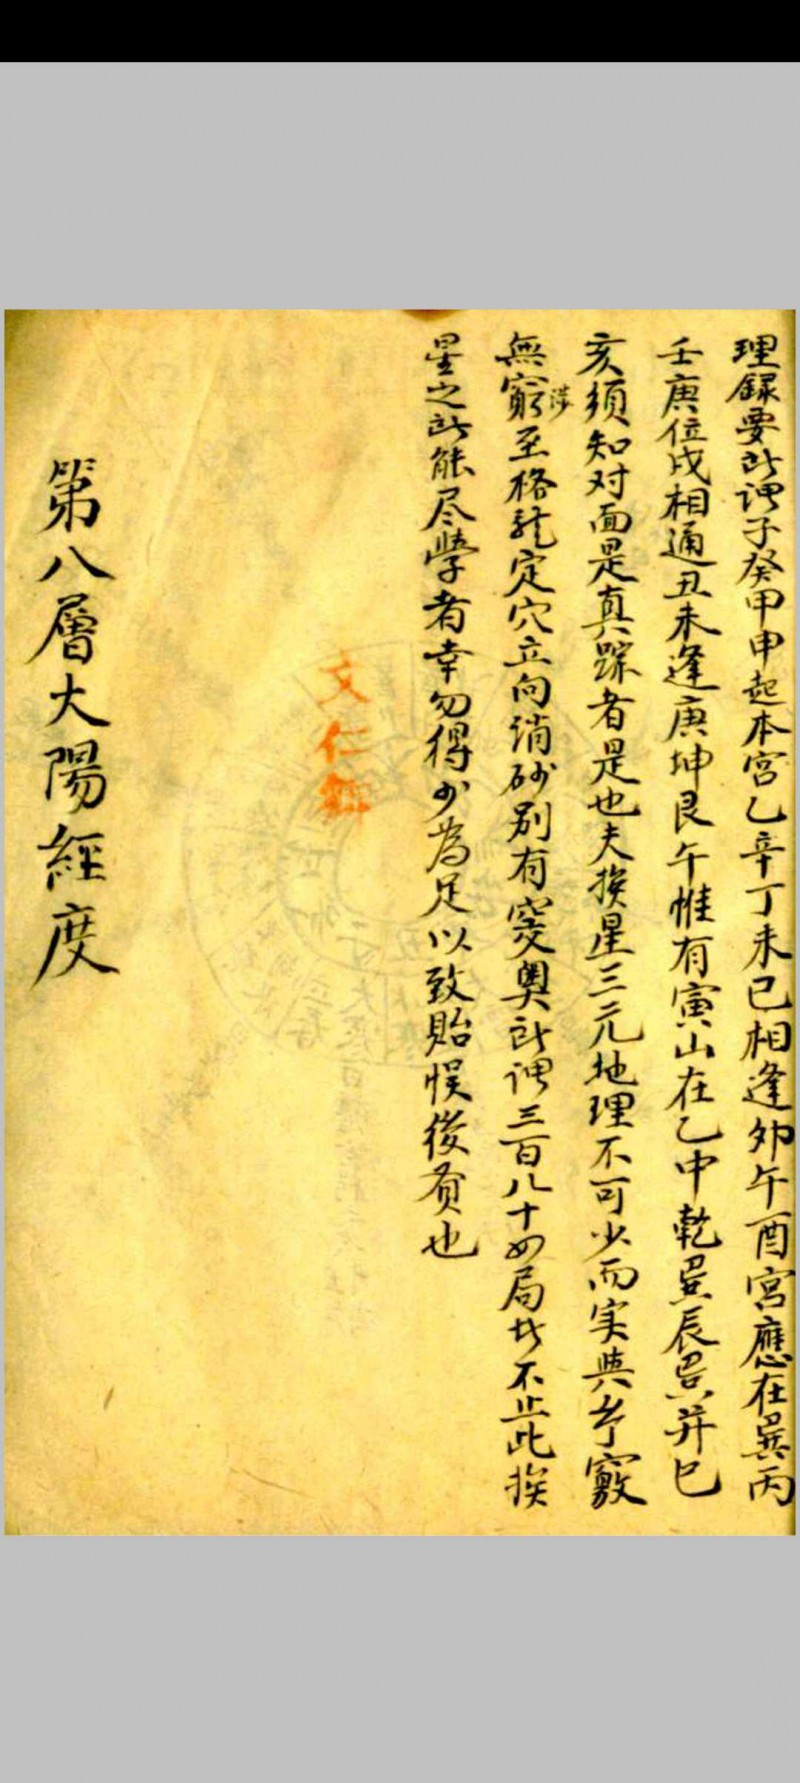 理録要所謂子癸甲申起本宮乙辛丁未巳相逢卯午酉宮應在巽丙
壬庚位戌相通丑未逢庚坤艮午惟有寅山在乙中乾巽辰巽并巳
亥須知对面是真踪者是也夫挨星三元地理不可少而实典竅
無窮至格龙定穴立向消砂別有窔奧所謂三百八十四局其不止此挨
星之所能尽學者幸勿得少為足以致貽悮後貟也
文仁
第八層太陽經度